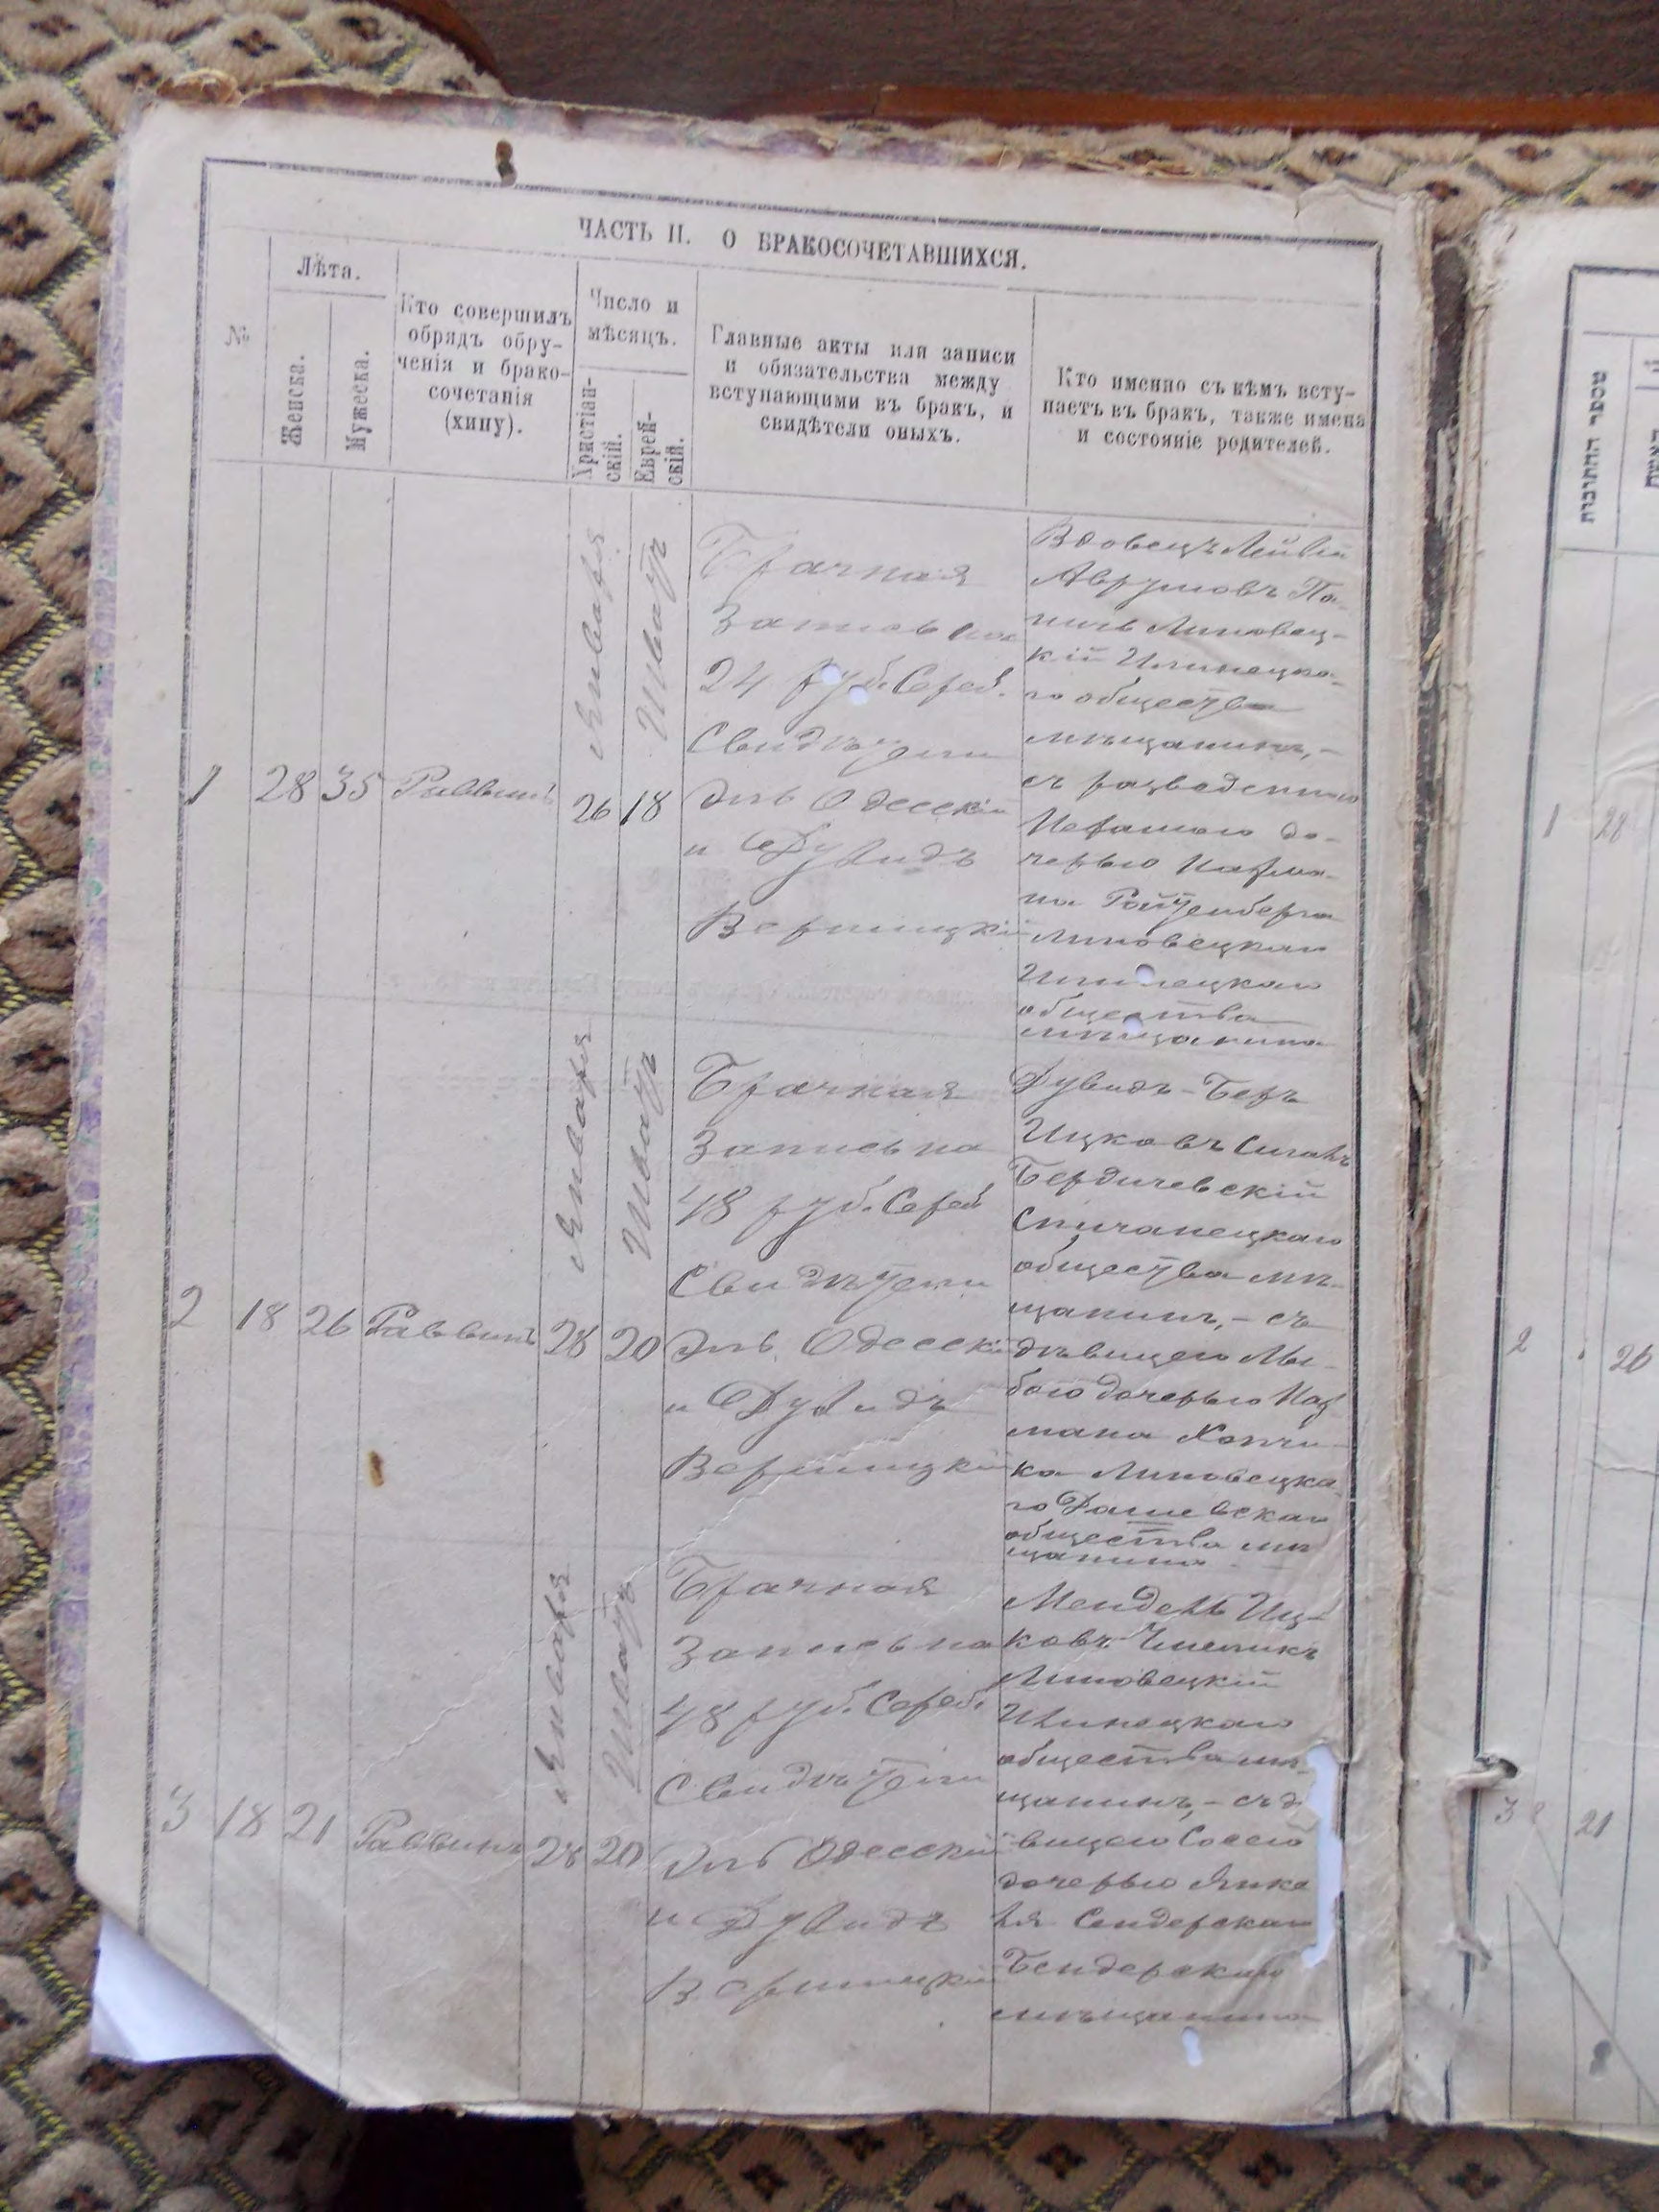 ЧАСТЬ II. О БРАКОСОЧЕТАВШИХСЯ.
№
Лѣта.
Женска.
Мужеска.
Кто совершилъ
обрядъ обру-
ченія и брако-
сочетанія
(хипу).
Число и
мѣсяцъ.
Христіан-
скій.
Еврей-
скій.
Главные акты или записи
и обязательства между
вступающими въ бракъ, и
свидѣтели оныхъ.
Кто именно съ кѣмъ всту-
паетъ въ бракъ, также имена
и состояніе родителей.
1
28
35
Раввинъ
Января
26
Шватъ
18
Брачная
Запись на
24 руб. Сереб.
Свидѣтели
Эль Одесскій
и Дувидъ
Вершицкій
Вдовецъ
Аврумовъ
Липовец-
кій Илинецка-
го общества
мѣщанинъ, –
съ разведенною
до-
черью Нахма-
на Ройтенберга
Липовецкаго
Илинецкаго
общества
мѣщанина
2
18
26
Раввинъ
Января
28
Шватъ
20
Брачная
Запись на
48 руб. Сереб
Свидѣтели
Эль Одесскій
и Дувидъ
Вершицкій
Дувидъ-Беръ
Ицковъ
Бердичевскій
Спичанецкаго
общества мѣ-
щанинъ, – съ
дѣвицею
дочерью Нах
мана
ка Липовецка-
го Дашевскаго
общества мѣ
щанина
3
18
21
Раввинъ
Января
28
Шватъ
20
Брачная
Запись на
48 руб. Сереб.
Свидѣтели
Эль Одесскій
и Дувидъ
Вершицкій
Мендель Иц-
ковъ
Липовецкій
Илинецкаго
общества мѣ-
щанинъ, – съ д
вицею Сосею
дочерью Янке
ля Сендерскаго
Бендерскаго
мѣщанина
1
28
2
26
3
21